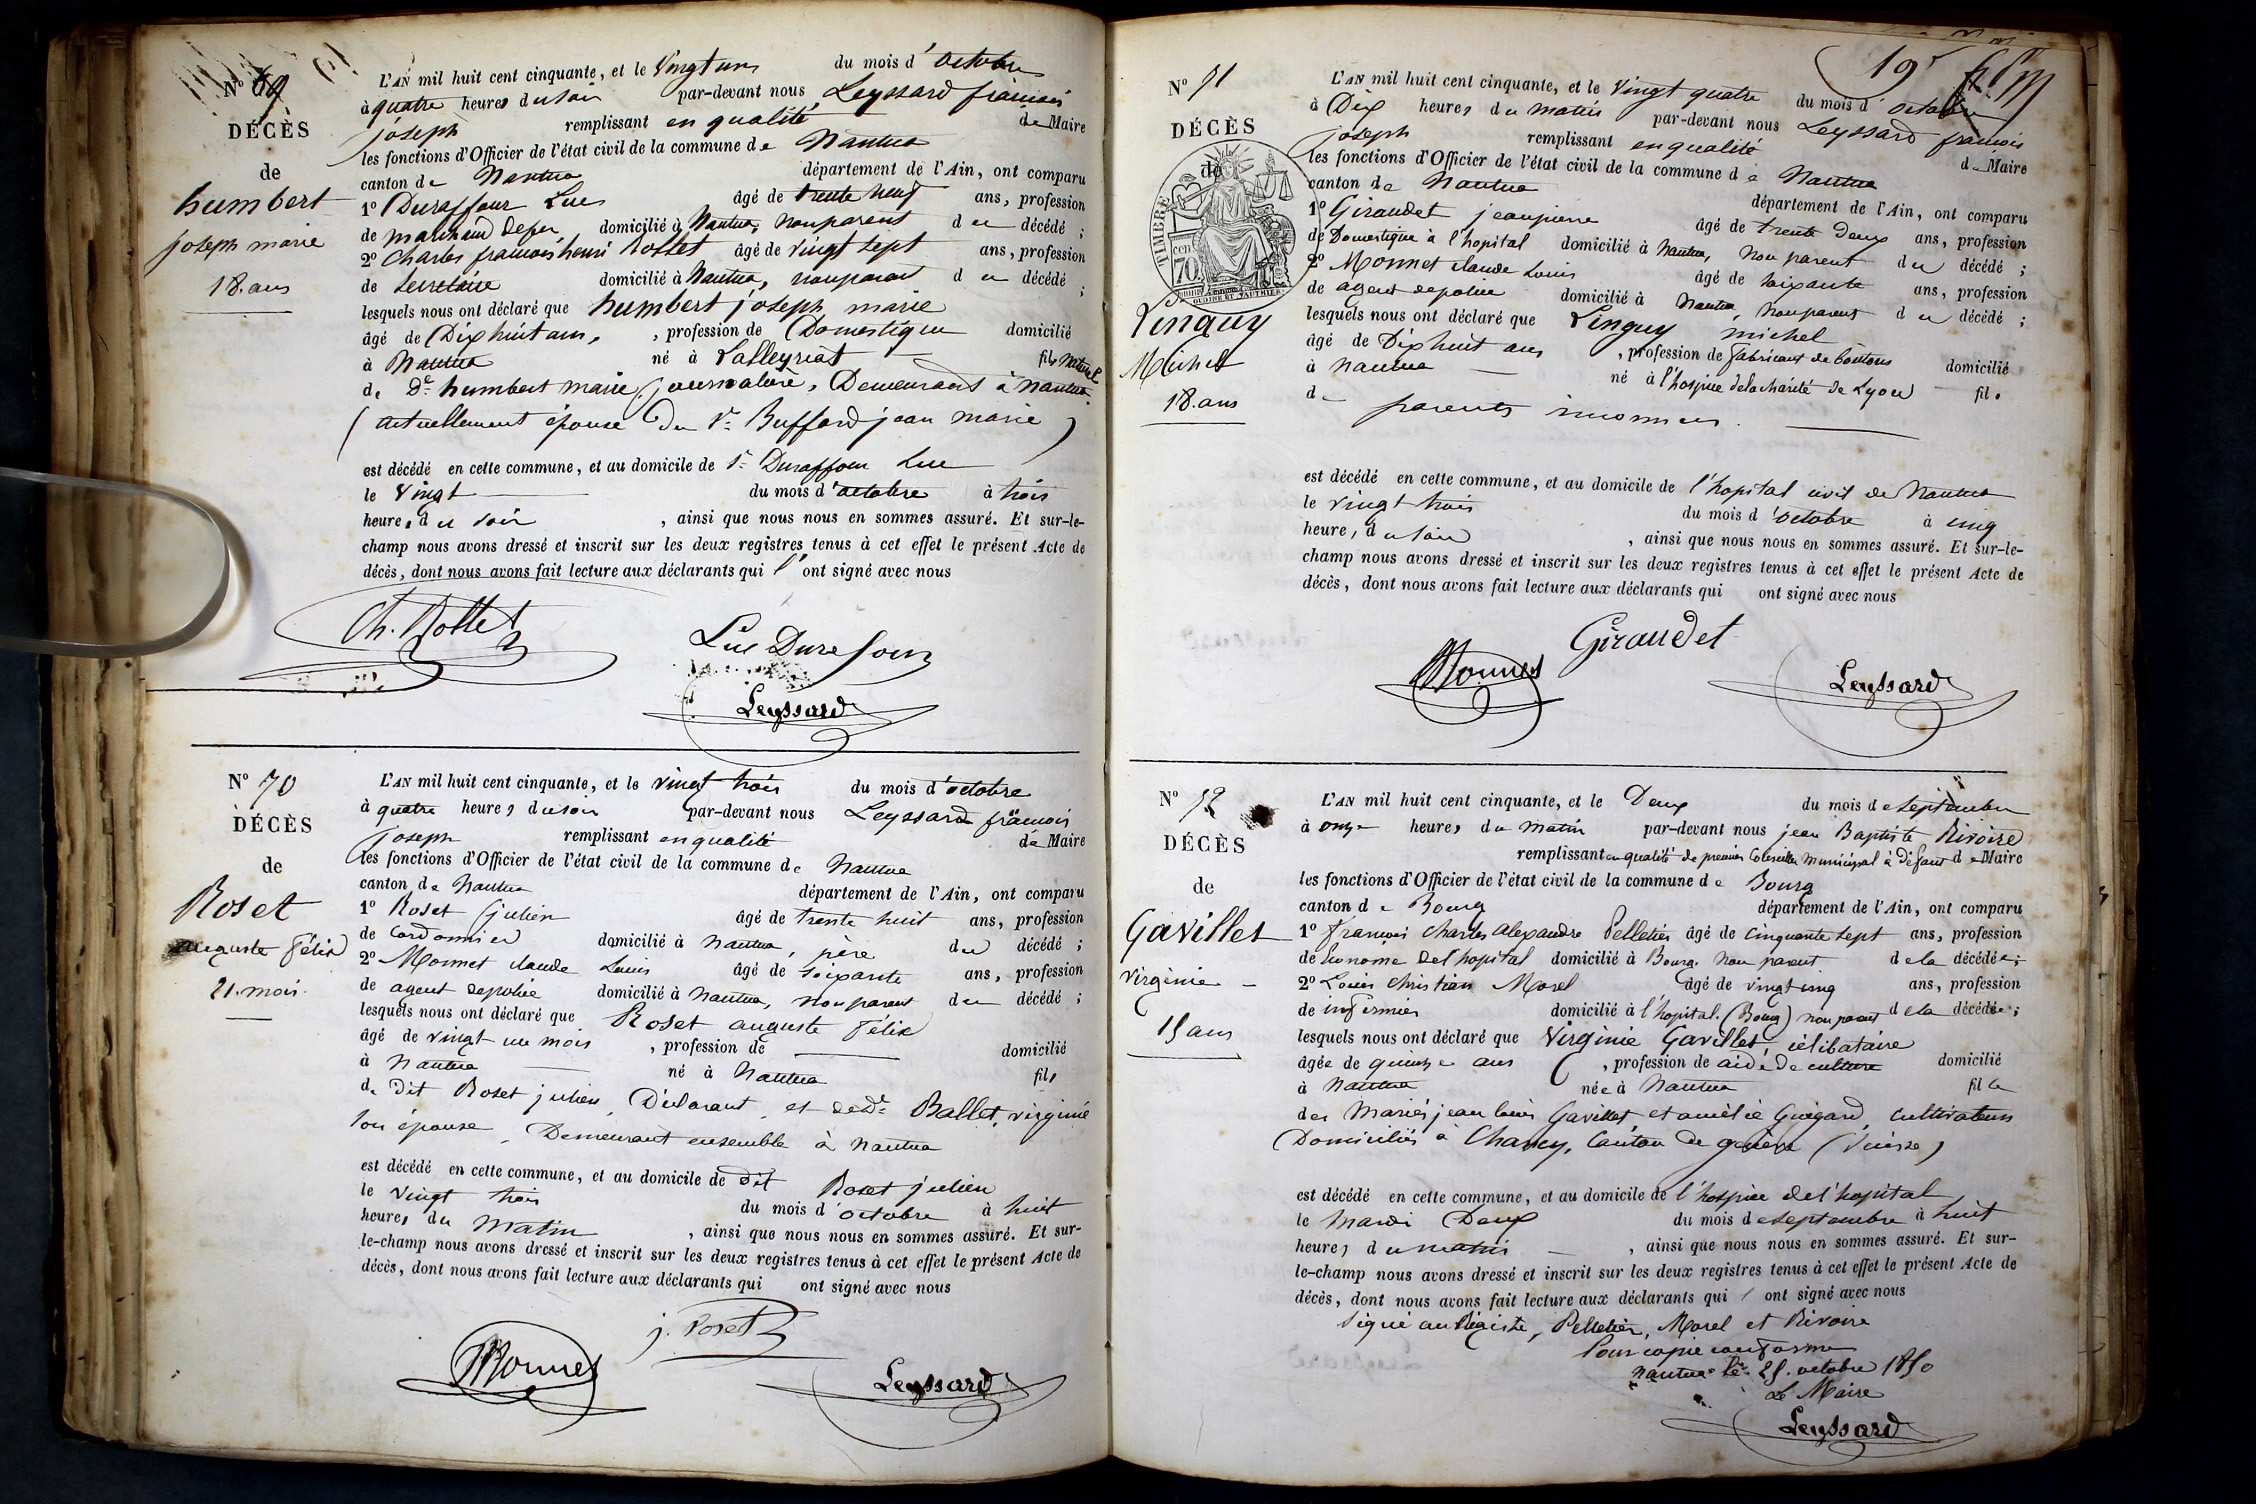 No 69
DÉCÈS
de
humbert
joseph marie
18. ans
L'AN mil huit cent cinquante, et le Vingt un du mois d'octobre
à quatre heures du soir par-devant nous Leyssard francois
joseph remplissant en qualité de Maire
les fonctions d'Officier de l'état civil de la commune de Nantua
canton de Nantua département de l'Ain, ont comparu
1o Duraffour Luc âgé de trente neuf ans, profession
de marchand de fer, domicilié à Nantua, non parent du décédé ;
2o Charles francois henri Rottet âgé de vingt sept ans, profession
de secretaire domicilié à Nantua, non parent du décédé ;
lesquels nous ont déclaré que humbert joseph marie
âgé de Dix huit ans, , profession de Domestique domicilié
à Nantua né à Lalleyriat fils naturel
de De humbert marie, journalière, Demeurant à Nantua
(actuellement épouse du Sr Buffard jean marie)
est décédé en cette commune, et au domicile de Sr Duraffour Luc
le Vingt du mois d'octobre à trois
heures du soir , ainsi que nous nous en sommes assuré. Et sur-le-
champ nous avons dressé et inscrit sur les deux registres tenus à cet effet le présent Acte de
décès, dont nous avons fait lecture aux déclarants qui l'ont signé avec nous
Ch. Rottet
Luc Durafour
Leyssard
No 70
DÉCÈS
de
Roset
auguste félix
21. mois.
L'AN mil huit cent cinquante, et le vingt trois du mois d'octobre
à quatre heures du soir par-devant nous Leyssard francois
joseph remplissant en qualité de Maire
les fonctions d'Officier de l'état civil de la commune de Nantua
canton de Nantua département de l'Ain, ont comparu
1o Roset julien âgé de trente huit ans, profession
de Cordonnier domicilié à Nantua, père du décédé ;
2o Monnet claude Louis âgé de soixante ans, profession
de agent de police domicilié à Nantua, non parent du décédé ;
lesquels nous ont déclaré que Roset auguste félix
âgé de vingt un mois , profession de domicilié
à Nantua né à Nantua fils
de dit Roset julien, Déclarant, et de De Ballet, virginie
son épouse, Demeurant ensemble à Nantua
est décédé en cette commune, et au domicile de dit Roset julien
le vingt trois du mois d'octobre à huit
heures du matin , ainsi que nous nous en sommes assuré. Et sur-
le-champ nous avons dressé et inscrit sur les deux registres tenus à cet effet le présent Acte de
décès, dont nous avons fait lecture aux déclarants qui ont signé avec nous
j. Roset
Monnet
Leyssard
19e
No 71
DÉCÈS
de
TIMBRE
70 cen
Linguy
Michel
18. ans
L'AN mil huit cent cinquante, et le vingt quatre du mois d'octobre
à Dix heures du matin par-devant nous Leyssard francois
joseph remplissant en qualité de Maire
les fonctions d'Officier de l'état civil de la commune de Nantua
canton de Nantua département de l'Ain, ont comparu
1o Giraudet jean pierre âgé de trente deux ans, profession
de Domestique à l'hopital domicilié à Nantua, non parent du décédé ;
2o Monnet claude Louis âgé de soixante ans, profession
de agent de police domicilié à Nantua, non parent du décédé ;
lesquels nous ont déclaré que Linguy michel
âgé de Dix huit ans , profession de fabricant de boutons domicilié
à Nantua né à l'hospice de la charité de Lyon fils
de parents inconnus.
est décédé en cette commune, et au domicile de l'hopital civil de Nantua
le vingt trois du mois d'octobre à cinq
heures du soir , ainsi que nous nous en sommes assuré. Et sur-le-
champ nous avons dressé et inscrit sur les deux registres tenus à cet effet le présent Acte de
décès, dont nous avons fait lecture aux déclarants qui ont signé avec nous
Giraudet
Monnet
Leyssard
No 72
DÉCÈS
de
Gavillet
virginie
15 ans
L'AN mil huit cent cinquante, et le Deux du mois de septembre
à onze heures du matin par-devant nous jean Baptiste Rivoire
remplissant en qualité de premier Conseiller municipal à défaut de Maire
les fonctions d'Officier de l'état civil de la commune de Bourg
canton de Bourg département de l'Ain, ont comparu
1o francois charles alexandre Pelletier âgé de cinquante sept ans, profession
de Econome de l'hopital domicilié à Bourg. non parent de la décédée ;
2o Louis christian Morel âgé de vingt cinq ans, profession
de infirmier domicilié à l'hopital. (Bourg) non parent de la décédée ;
lesquels nous ont déclaré que Virginie Gavillet célibataire
âgée de quinze ans , profession de aide de culture domicilié
à Nantua née à Nantua fille
des Mariés jean louis Gavillet et amélie Guigard, cultivateurs
Domiciliés à Chancy, Canton de genève (suisse)
est décédé en cette commune, et au domicile de l'hospice de l'hopital
le Mardi Deux du mois de septembre à huit
heures du matin , ainsi que nous nous en sommes assuré. Et sur-
le-champ nous avons dressé et inscrit sur les deux registres tenus à cet effet le présent Acte de
décès, dont nous avons fait lecture aux déclarants qui ont signé avec nous
Signé au Régistre, Pelletier, Morel et Rivoire
Pour copie conforme
Nantua le 25. octobre 1850
Le Maire
Leyssard